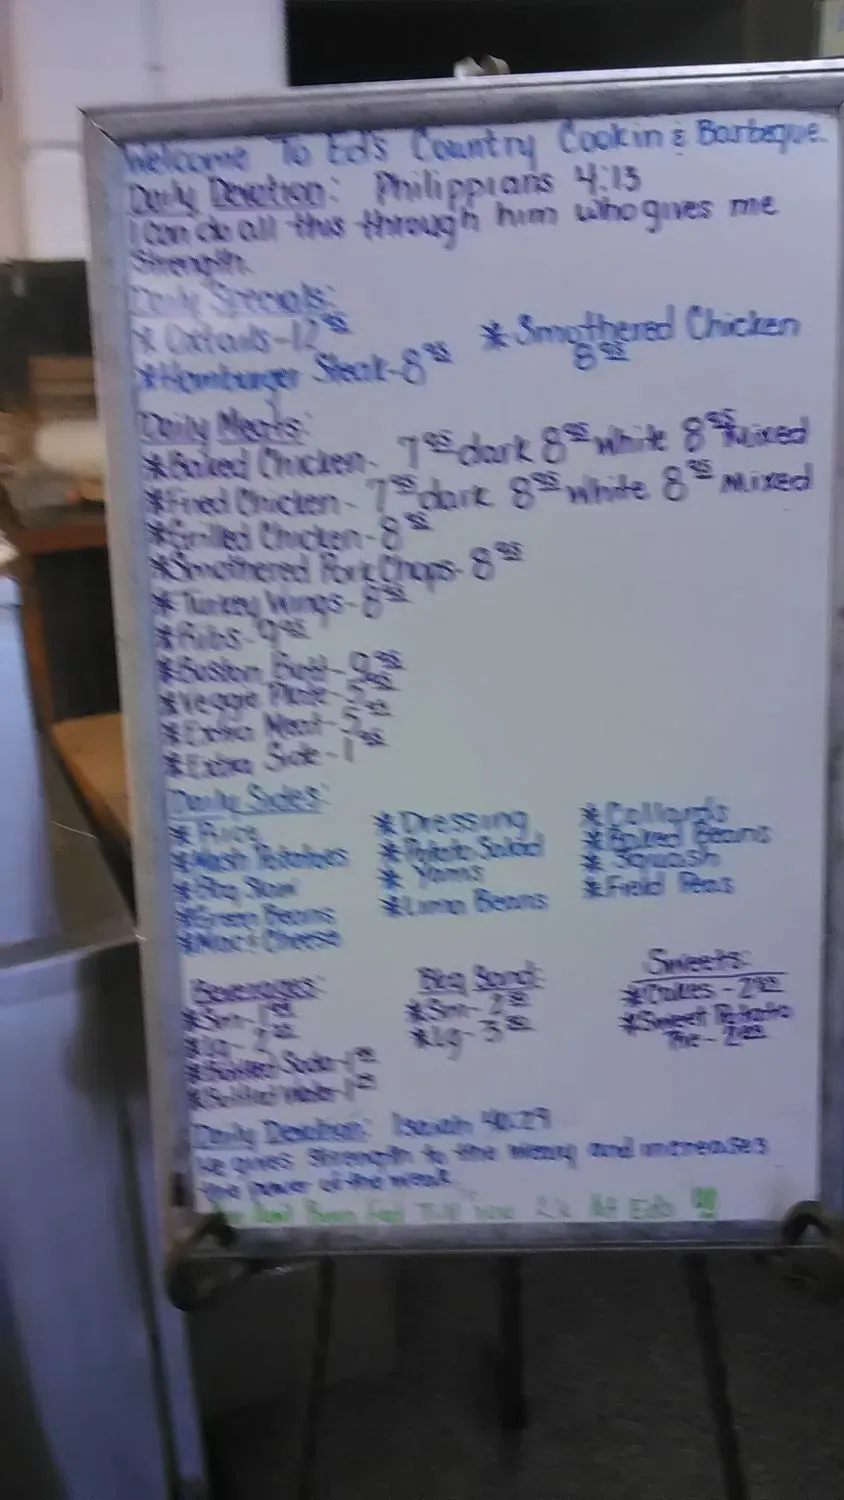 Welcome To Ed's Country Cookin & Barbeque.
Daily Devotion: Philippians 4:13
I can do all this through him who gives me
strength.
Daily Specials:
* Oxtails-12 * Smothered Chicken
*Hamburger Steak-8 95 8 95
Daily Meats:
*Baked Chicken- 7 95 dark 8 95 white 8 95 Mixed
*Fried Chicken- 7 95 dark 8 95 white 8 95 Mixed
*Grilled Chicken-8 95
*Smothered Pork Chops- 8 95
* Turkey Wings-8 95
*Ribs-9 95
*Boston Butt-9 95
*Veggie Plate-
*Extra Meat-
*Extra Side-1
Daily Sides:
* Rice *Dressing *Collards
*Mash Potatoes *Potato Salad *Baked Beans
*Bbq Slaw * Yams * Squash
*Green Beans *Lima Beans *Field Peas
*Mac & Cheese
Beverages: Bbq Sand: Sweets:
*Sm-1 *Sm-2 *Cakes-2
*Lg-2 *Lg-3 *Sweet Potato
*Bottled Soda-1 Pie-2
*Bottled Water-1
Daily Devotion: Isaiah 40:29
He gives strength to the weary and increases
the power of the weak.
Been Fed Till You At Ed's !!